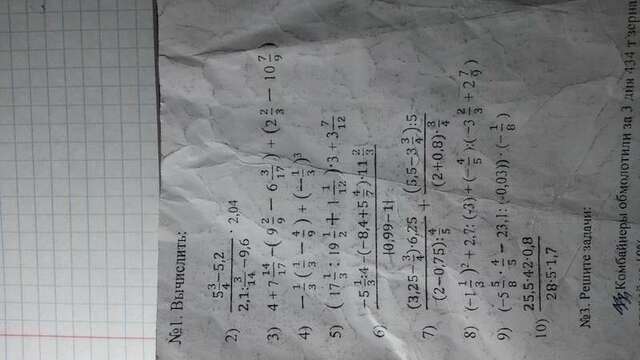 №1. Вычислить:
2) \frac{5\frac{3}{4}-5,2}{2,1:\frac{3}{14}-9,6} · 2,04
3) 4+7\frac{14}{17}-(9\frac{2}{9}-6\frac{3}{17})+(2\frac{2}{3}-10\frac{7}{9})
4) -\frac{1}{3}(\frac{1}{3}-\frac{4}{9})+(-\frac{1}{3})^3
5) (17\frac{1}{3}:19\frac{1}{2}+1\frac{1}{12})·3+3\frac{7}{12}
6) \frac{-5\frac{1}{3}:4-(-8,4+5\frac{4}{7})·11\frac{2}{3}}{|0,99-1|}
7) \frac{(3,25-\frac{3}{4})·6,25}{(2-0,75):\frac{4}{5}}+\frac{(5,5-3\frac{3}{4}):5}{(2+0,8)·\frac{3}{4}}
8) (-1\frac{1}{3})^2+2,7:(-3)+(-\frac{4}{5}):(-3\frac{2}{3}+2\frac{7}{9})
9) (-5\frac{5}{8}·\frac{4}{5}-23,1:(-0,03))·(-\frac{1}{8})
10) \frac{25,5·42·0,8}{28·5·1,7}
№3. Решите задачи:
Комбайнеры обмолотили за 3 дня 434 т зерна